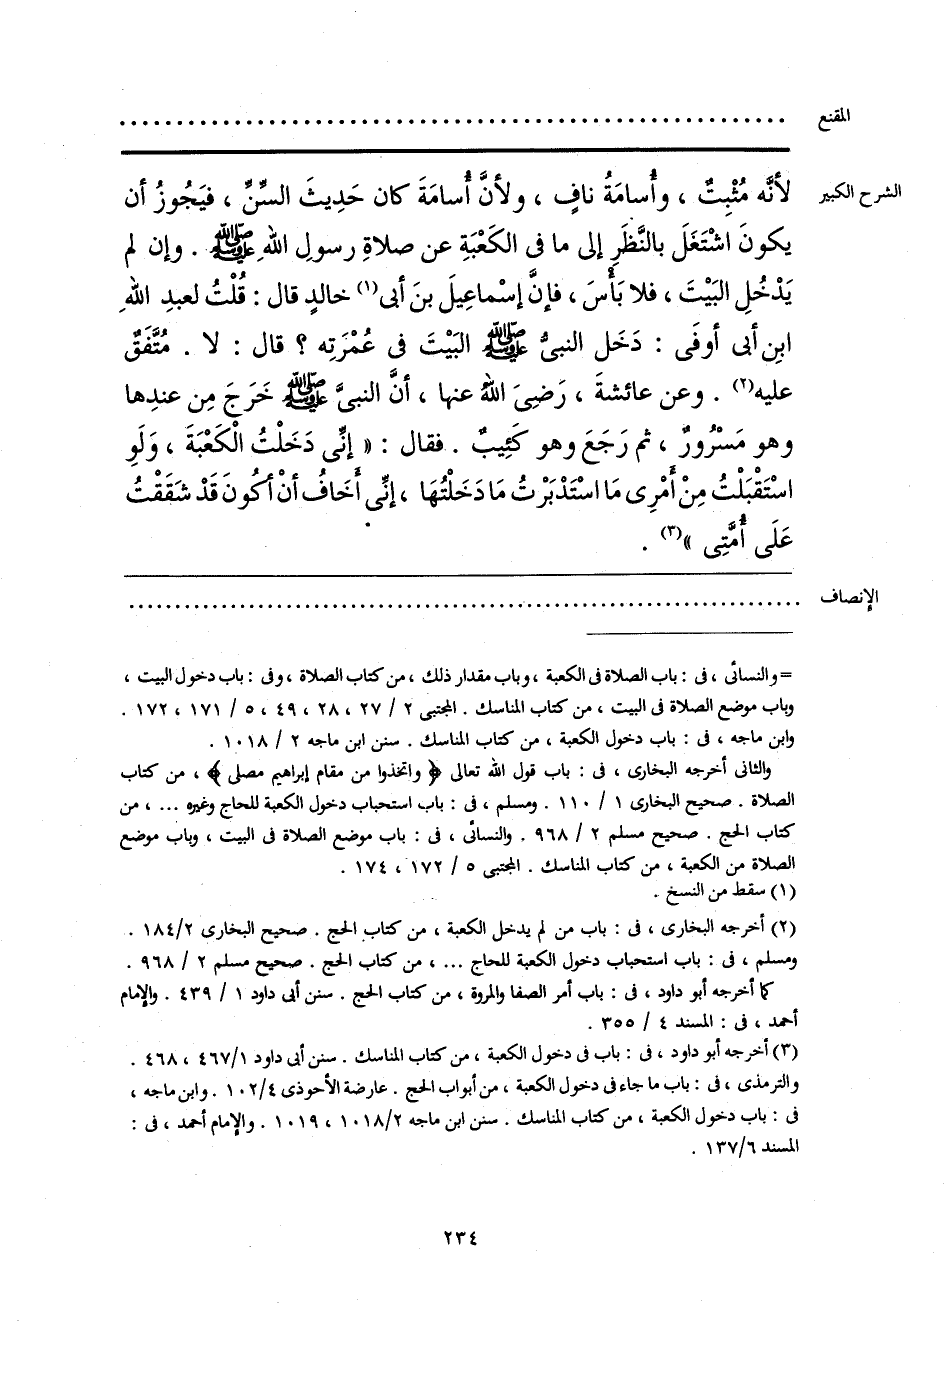 المقنع ........................................
الشرح الكبير لأنَّه مُثْبِتٌ ، وأُسامَةُ نافٍ ، ولأنَّ أُسامَةَ كان حَدِيثَ السِّنِّ ، فيَجُوزُ أن
يكونَ اشْتَغَلَ بالنَّظَرِ إلى ما فى الكَعْبَةِ عن صلاةِ رسولِ اللهِ ﷺ . وإن لم
يَدْخُلِ البَيْتَ ، فلا بَأْسَ ، فإنَّ إسْماعِيلَ بنَ أبى(١) خالدٍ قال : قُلْتُ لعبدِ اللهِ
ابنِ أبى أوفَى : دَخَل النبىُّ ﷺ البَيْتَ فى عُمْرَتِه ؟ قال : لا . مُتَّفَقٌ
عليه(٢) . وعن عائشةَ ، رَضِىَ اللهُ عنها ، أنَّ النبىَّ ﷺ خَرَجَ مِن عندِها
وهو مَسْرُورٌ ، ثم رَجَعَ وهو كَئِيبٌ . فقال : « إنِّى دَخَلْتُ الْكَعْبَةَ ، وَلَوِ
اسْتَقْبَلْتُ مِنْ أَمْرِى مَا اسْتَدْبَرْتُ مَا دَخَلْتُهَا ، إنِّى أَخَافُ أنْ أكُونَ قَدْ شَقَقْتُ
عَلَى أُمَّتِى »(٣) .
الإنصاف ........................................
= والنسائى ، فى : باب الصلاة فى الكعبة ، وباب مقدار ذلك ، من كتاب الصلاة ، وفى : باب دخول البيت ،
وباب موضع الصلاة فى البيت ، من كتاب المناسك . المجتبى ٢ / ٢٧ ، ٢٨ ، ٤٩ ، ٥ / ١٧١ ، ١٧٢ .
وابن ماجه ، فى : باب دخول الكعبة ، من كتاب المناسك . سنن ابن ماجه ٢ / ١٠١٨ .
والثانى أخرجه البخارى ، فى : باب قول الله تعالى ﴿ واتخذوا من مقام إبراهيم مصلى ﴾ ، من كتاب
الصلاة . صحيح البخارى ١ / ١١٠ . ومسلم ، فى : باب استحباب دخول الكعبة للحاج وغيره ... ، من
كتاب الحج . صحيح مسلم ٢ / ٩٦٨ . والنسائى ، فى : باب موضع الصلاة فى البيت ، وباب موضع
الصلاة من الكعبة ، من كتاب المناسك . المجتبى ٥ / ١٧٢ ، ١٧٤ .
(١) سقط من النسخ .
(٢) أخرجه البخارى ، فى : باب من لم يدخل الكعبة ، من كتاب الحج . صحيح البخارى ٢/ ١٨٤ .
ومسلم ، فى : باب استحباب دخول الكعبة للحاج ... ، من كتاب الحج . صحيح مسلم ٢ / ٩٦٨ .
كما أخرجه أبو داود ، فى : باب أمر الصفا والمروة ، من كتاب الحج . سنن أبى داود ١ / ٤٣٩ . والإمام
أحمد ، فى : المسند ٤ / ٣٥٥ .
(٣) أخرجه أبو داود ، فى : باب فى دخول الكعبة ، من كتاب المناسك . سنن أبى داود ١/ ٤٦٧ ، ٤٦٨ .
والترمذى ، فى : باب ما جاء فى دخول الكعبة ، من أبواب الحج . عارضة الأحوذى ٤/ ١٠٢ . وابن ماجه ،
فى : باب دخول الكعبة ، من كتاب المناسك . سنن ابن ماجه ٢/ ١٠١٨ ، ١٠١٩ . والإمام أحمد ، فى :
المسند ٦/ ١٣٧ .
٢٣٤